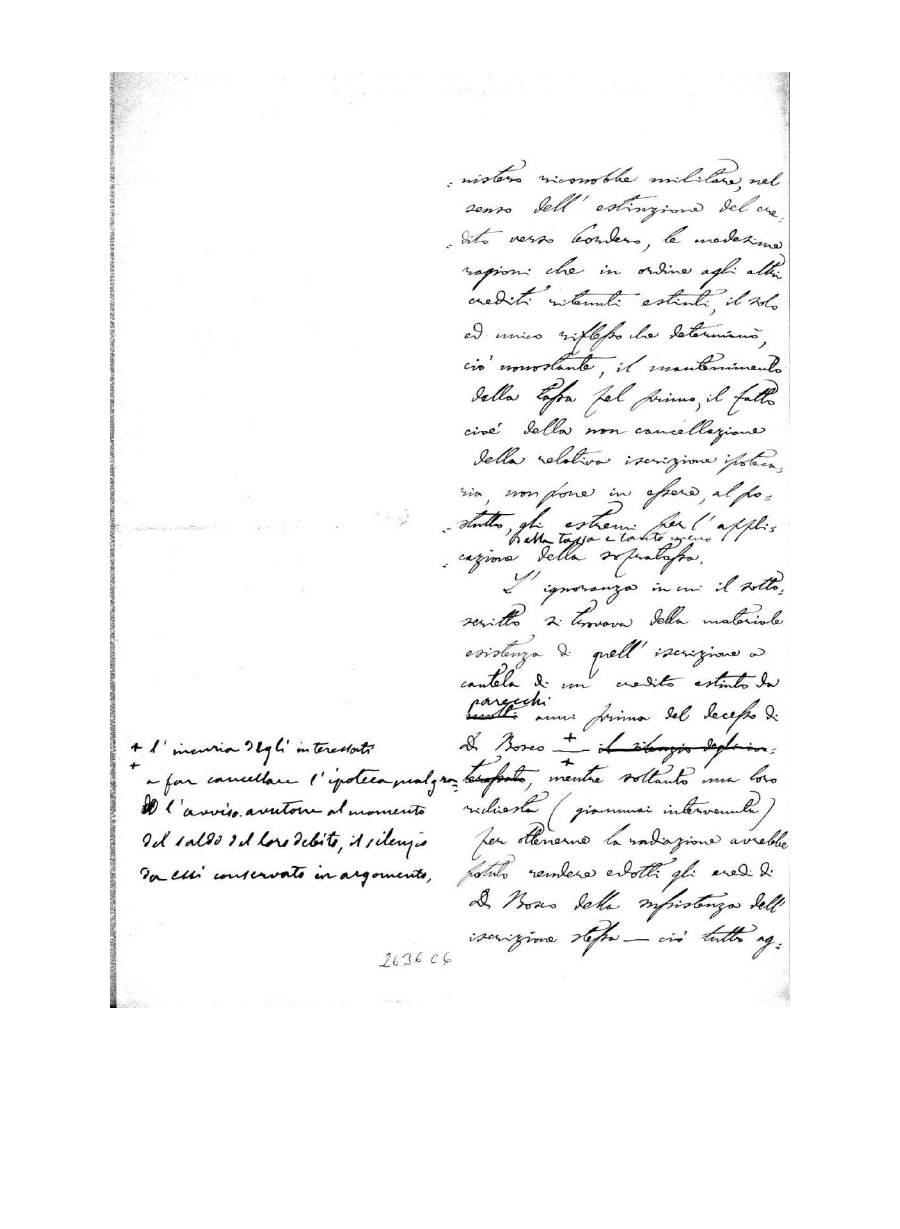 : nistero riconobbe militare, nel
senso dell' estinzione del cre:
: dito verso Bordero, le medesime
ragioni che in ordine agli altri
crediti ritenuti estinti, il solo
ed unico riflesso che determinò,
ciò nonostante, il mantenimento
della tassa pel primo, il fatto
cioè della non cancellazione
della relativa iscrizione ipoteca:
ria, non pone in essere, al po:
: stutto, gli estremi per l' appli:
della tassa e tanto meno
: cazione della sopratassa.
L' ignoranza in cui il sotto:
scritto si trovava della materiale
esistenza di quell' iscrizione a
cautela di un credito estinto da
parecchi
molti anni prima del decesso di
D. Bosco — + il silenzio degli in:
+
teressati, mentre soltanto una loro
richiesta (giammai intervenuta)
per ottenerne la radiazione avrebbe
potuto rendere edotti gli eredi di
D. Bosco della sussistenza dell'
iscrizione stessa — ciò tutto ag:
+ l' incuria degli interessati
+
a far cancellare l' ipoteca malgra:
do l' avviso avutone al momento
del saldo del loro debito, il silenzio
da essi conservato in argomento,
2636 C6